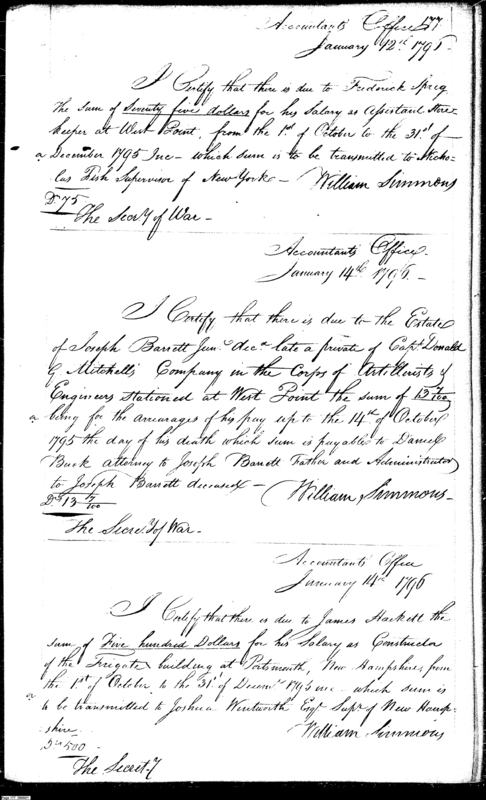 Accountants Office 177
January 12th 1796-
I Certify that there is due to Frederick Spreg
the sum of Seventy five dollars for his Salary as Assistant Store
Keeper at West Point, from the 1st of October to the 31st of -
a December 1795 Inc - which sum is to be transmitted to Nicho-
las Fish Supervisor of New York - William Simmons
Ds 75
The Secry of War -
Accountants Office.
January 14th 1796.-
I Certify that there is due to the Estate
of Joseph Barrett Junr decd late a private of Capt Donald
G Mitchell's Company in the Corps of Artillerists &
Engineers stationed at West Point the sum of 13 7/100
a being for the arrearages of his pay up to the 14th of October
1795 the day of his death which sum is payable to Daniel
Buck attorney to Joseph Barrett Father and Administrator
to Joseph Barrett deceased - William Simmons -
Ds 13 7/100
The Secrey of War -
Accountants Office
January 14th 1796
I Certify that there is due to James Hackett the
sum of Five hundred Dollars for his Salary as Constructor
of the Frigate building at Portsmouth, New Hampshire, from
the 1st of October to the 31st of Decemr 1795 inc - which sum is
a to be transmitted to Joshua Wentworth Esqr Supr of New Hamp-
shire. William Simmons
Ds 500 -
The Secrety